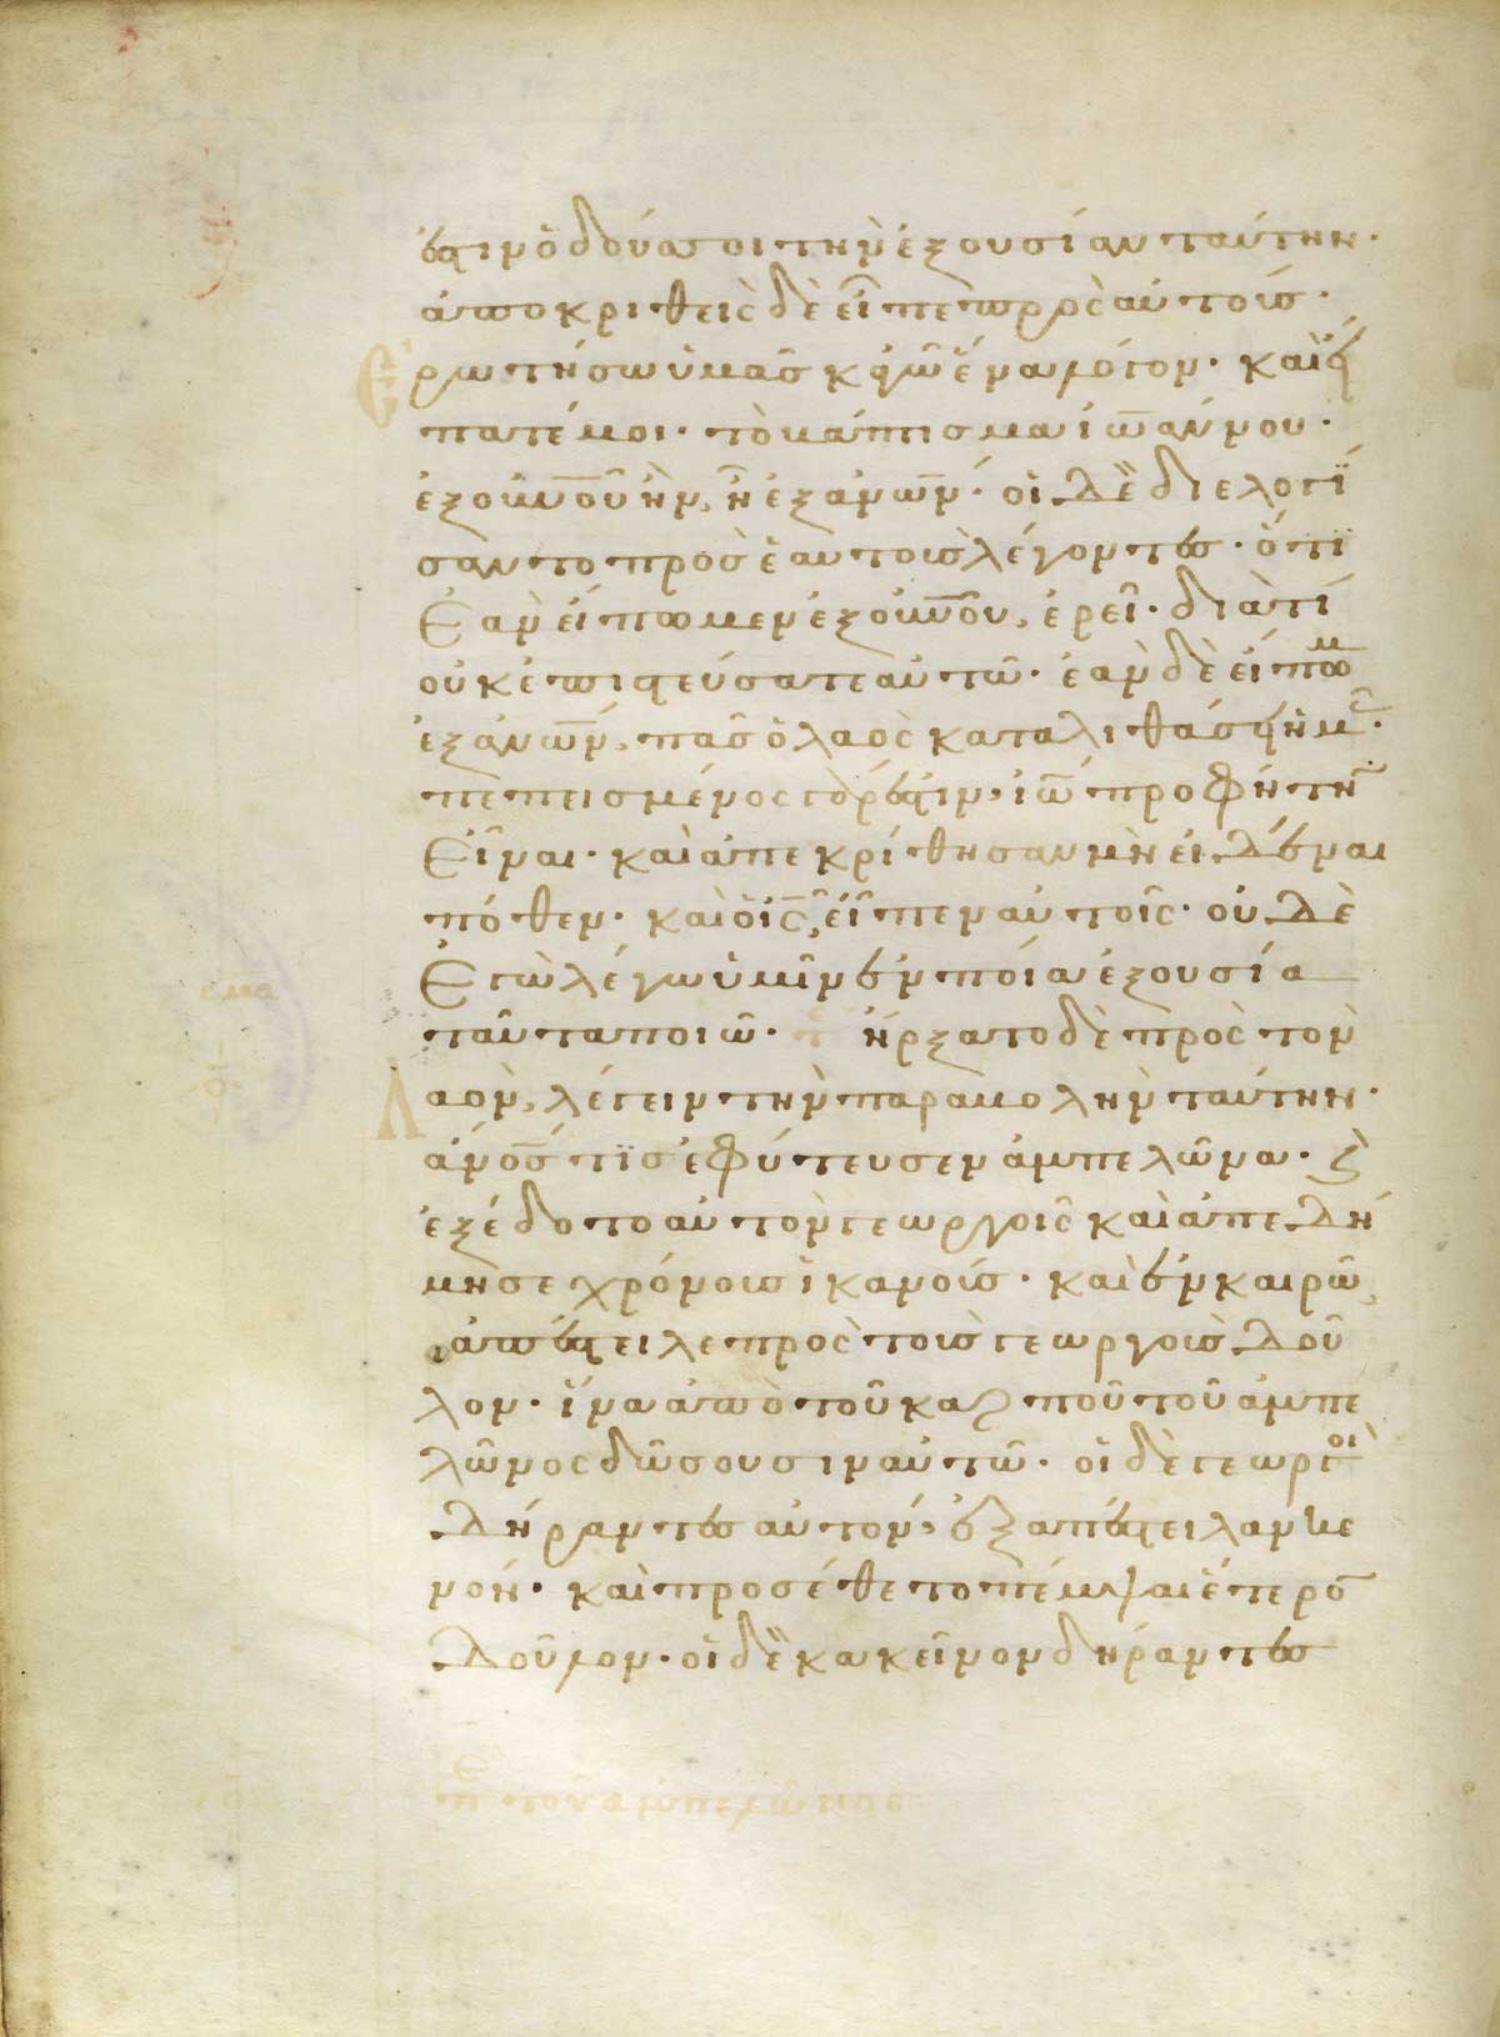 ἐστιν ὁ δούς σοι τὴν ἐξουσίαν ταύτην·
ἀποκριθεὶς δὲ εἶπε πρὸς αὐτούς·
Ἐρωτήσω ὑμᾶς κἀγὼ ἕνα λόγον· καὶ εἴ
πατέ μοι· τὸ βάπτισμα ἰω̅άννου·
ἐξ οὐν̅οῦ ἦν, ἢ ἐξ ἀνω̅ν· οἱ δὲ διελογί
σαντο πρὸς ἑαυτοὺς λέγοντες· ὅτι
Ἐὰν εἴπωμεν ἐξ οὐν̅οῦ, ἐρεῖ· διὰ τί
οὐκ ἐπιστεύσατε αὐτῶ· ἐὰν δὲ εἴπωμ
ἐξ ἀνω̅ν, πᾶς ὁ λαὸς καταλιθάσει ἡμᾶς·
πεπεισμένος γάρ ἐστιν, ἰω̅ προφήτην
Εἶναι· καὶ ἀπεκρίθησαν μὴ εἰδέναι
πόθεν· καὶ ὁ ις̅ εἶπεν αὐτοῖς· οὐδὲ
Ἐγὼ λέγω ὑμῖν ἐν ποία ἐξουσία
ταῦτα ποιῶ· ἤρξατο δὲ πρὸς τὸν
Λαὸν, λέγειν τὴν παραβολὴν ταύτην·
ἀνο̅ς τὶς ἐφύτευσεν ἀμπελῶνα· ϗ
ἐξέδοτο αὐτὸν γεωργοῖς καὶ ἀπεδή
μησε χρόνους ἱκανούς· καὶ ἐν καιρῶ
ἀπέστειλε πρὸς τοὺς γεωργοὺς δοῦ
λον· ἵνα ἀπὸ τοῦ καρποῦ τοῦ ἀμπε
λῶνος δώσουσιν αὐτῶ· οἱ δὲ γεωργοὶ
δήραντες αὐτόν, ἐξαπέστειλαν κε
νόν· καὶ προσέθετο πέμψαι ἕτερο̅
δοῦλον· οἱ δὲ κακεῖνον δήραντες